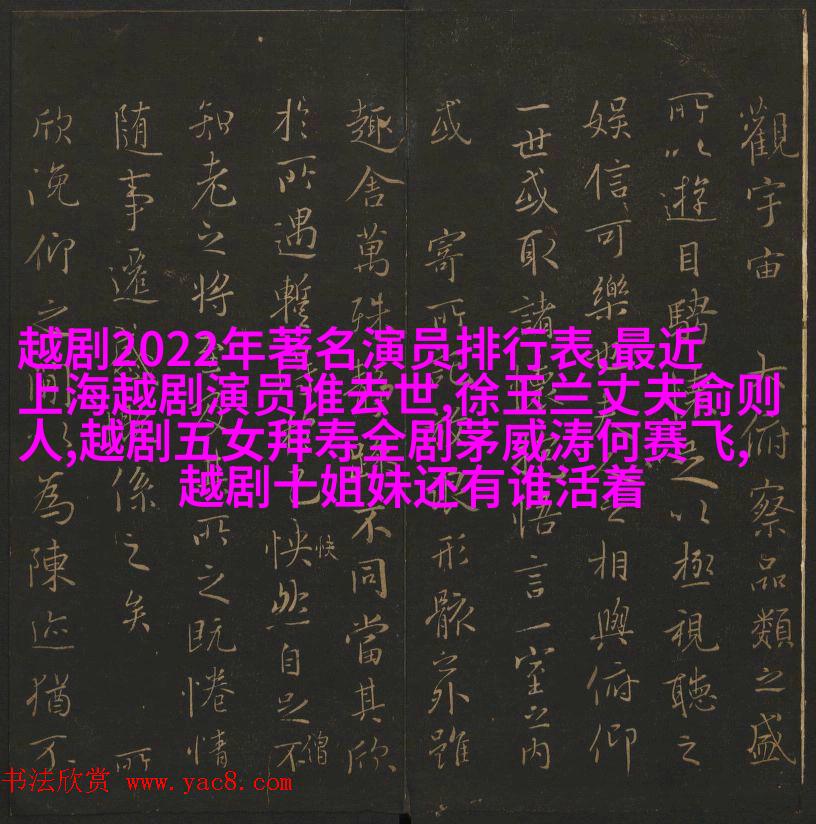 越剧2022年著名演员排行表,最近
上海越剧演员谁去世,徐玉兰丈夫俞则
人,越剧五女拜寿全剧茅威涛何赛飞,
越剧十姐妹还有谁活着
觀宇宙 大俯察品類之盛
所以遊目騁之以極視聽之
娛信可樂相與俯仰
一世或取諸悟言一室之內
或寄所形骸之外雖
趣舍萬殊不同當其欣
於所遇暫怏然自足不
快
僧
知老之將所之既惓情
隨事遷係之矣 所
欣俛仰之為陳迹猶不
书法欣赏 www.yac8.com